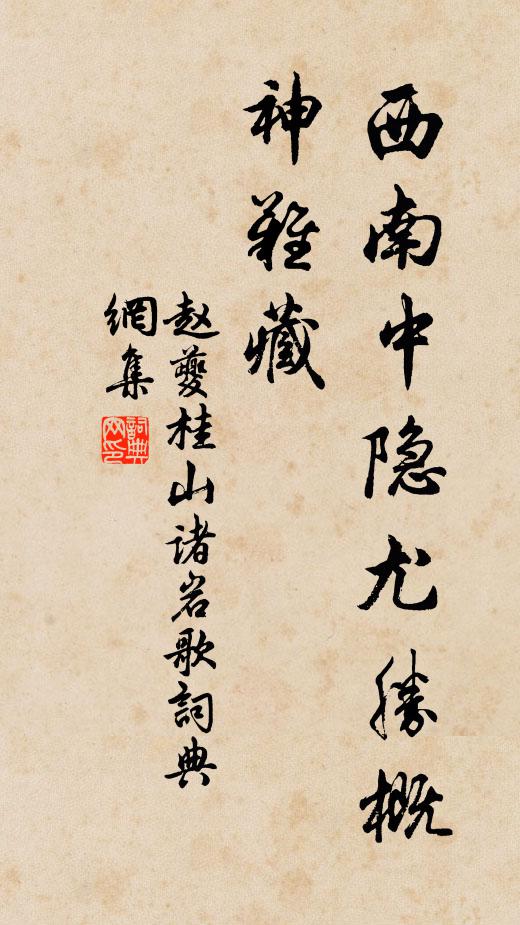 西南中隐尤勝概
神難藏
赵夔桂山诸岩歌詞典
網集
詞典
网印